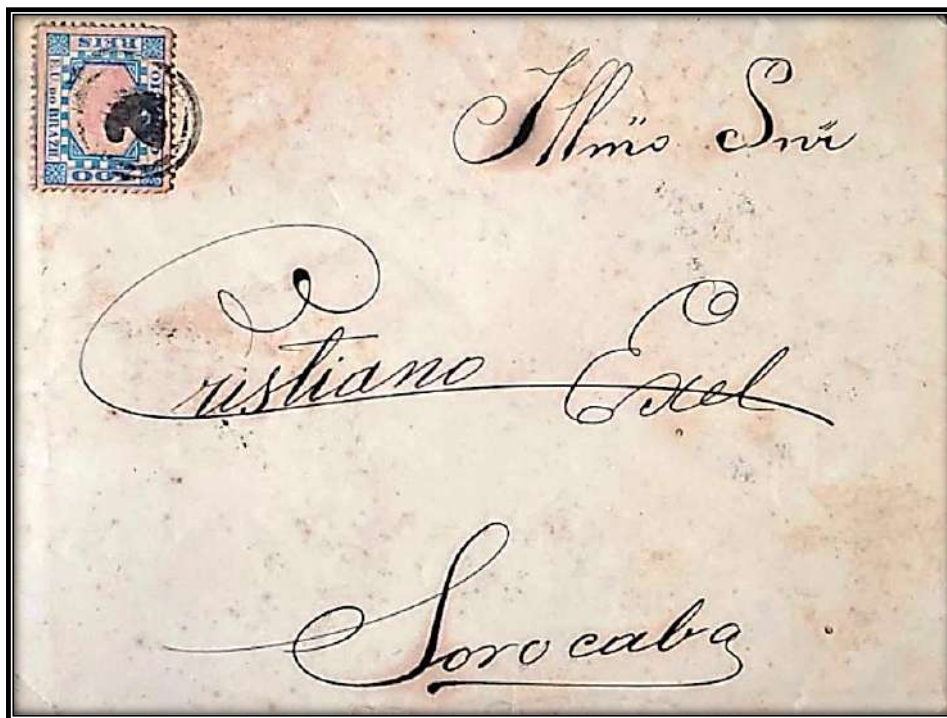 REIS
E.U. DO BRAZIL
Illmo Snr
Cristiano Exel
Sorocaba